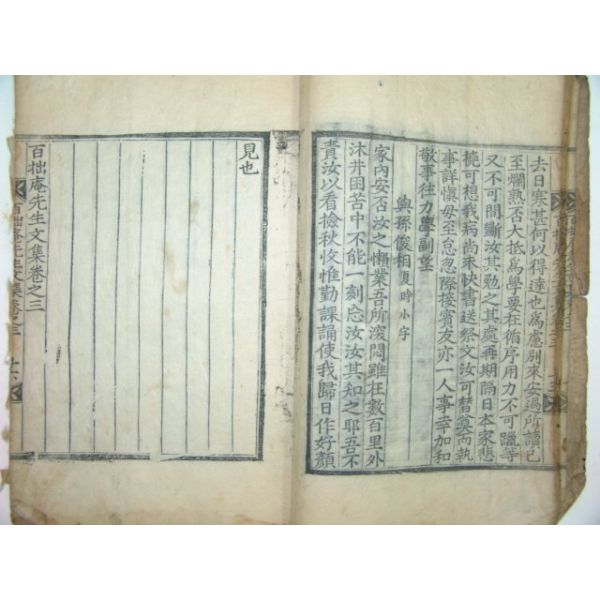 去日寒甚何以得達也爲慮別來安過所讀已
至爛熟否大抵爲學要在循序用力不可躐等
又不可間斷汝其勉之其處再期隔日本家悲
撓可想我病尚未快書送祭文汝可替奠而執
事詳愼毋至怠忽際接賓友亦一人事幸加和
敬事往力學副望
與孫復相復時小字
家內安否汝之懶業吾所深悶雖在數百里外
沐井困苦中不能一刻忘汝汝其知之耶吾不
責汝以看檢秋收惟勤課誦使我歸日作好顏
見也
百拙庵先生文集卷之三
百拙庵先生文集卷之三